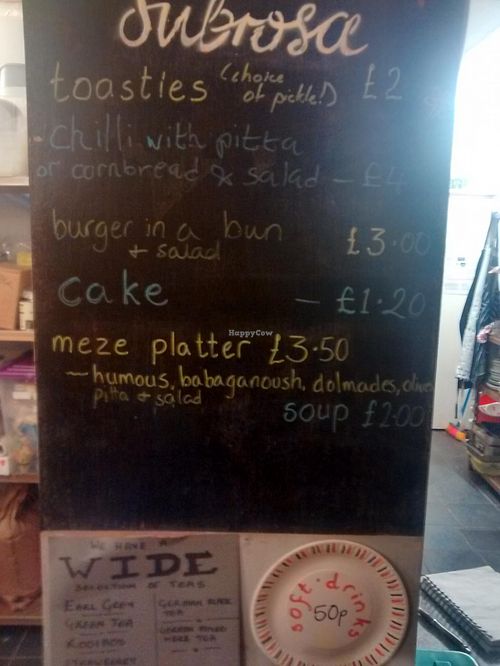 Subrosa
toasties (choice of pickle!) £2
chilli with pitta
or cornbread & salad - £4
burger in a bun
+ salad £3.00
cake - £1.20
HappyCow
meze platter £3.50
- humous, babaganoush, dolmades, olives
pitta + salad
soup £2.00
WE HAVE A
WIDE
SELECTION OF TEAS
EARL GREY
GREEN TEA
ROOIBOS
STRAWBERRY
TEA
soft drinks
50p